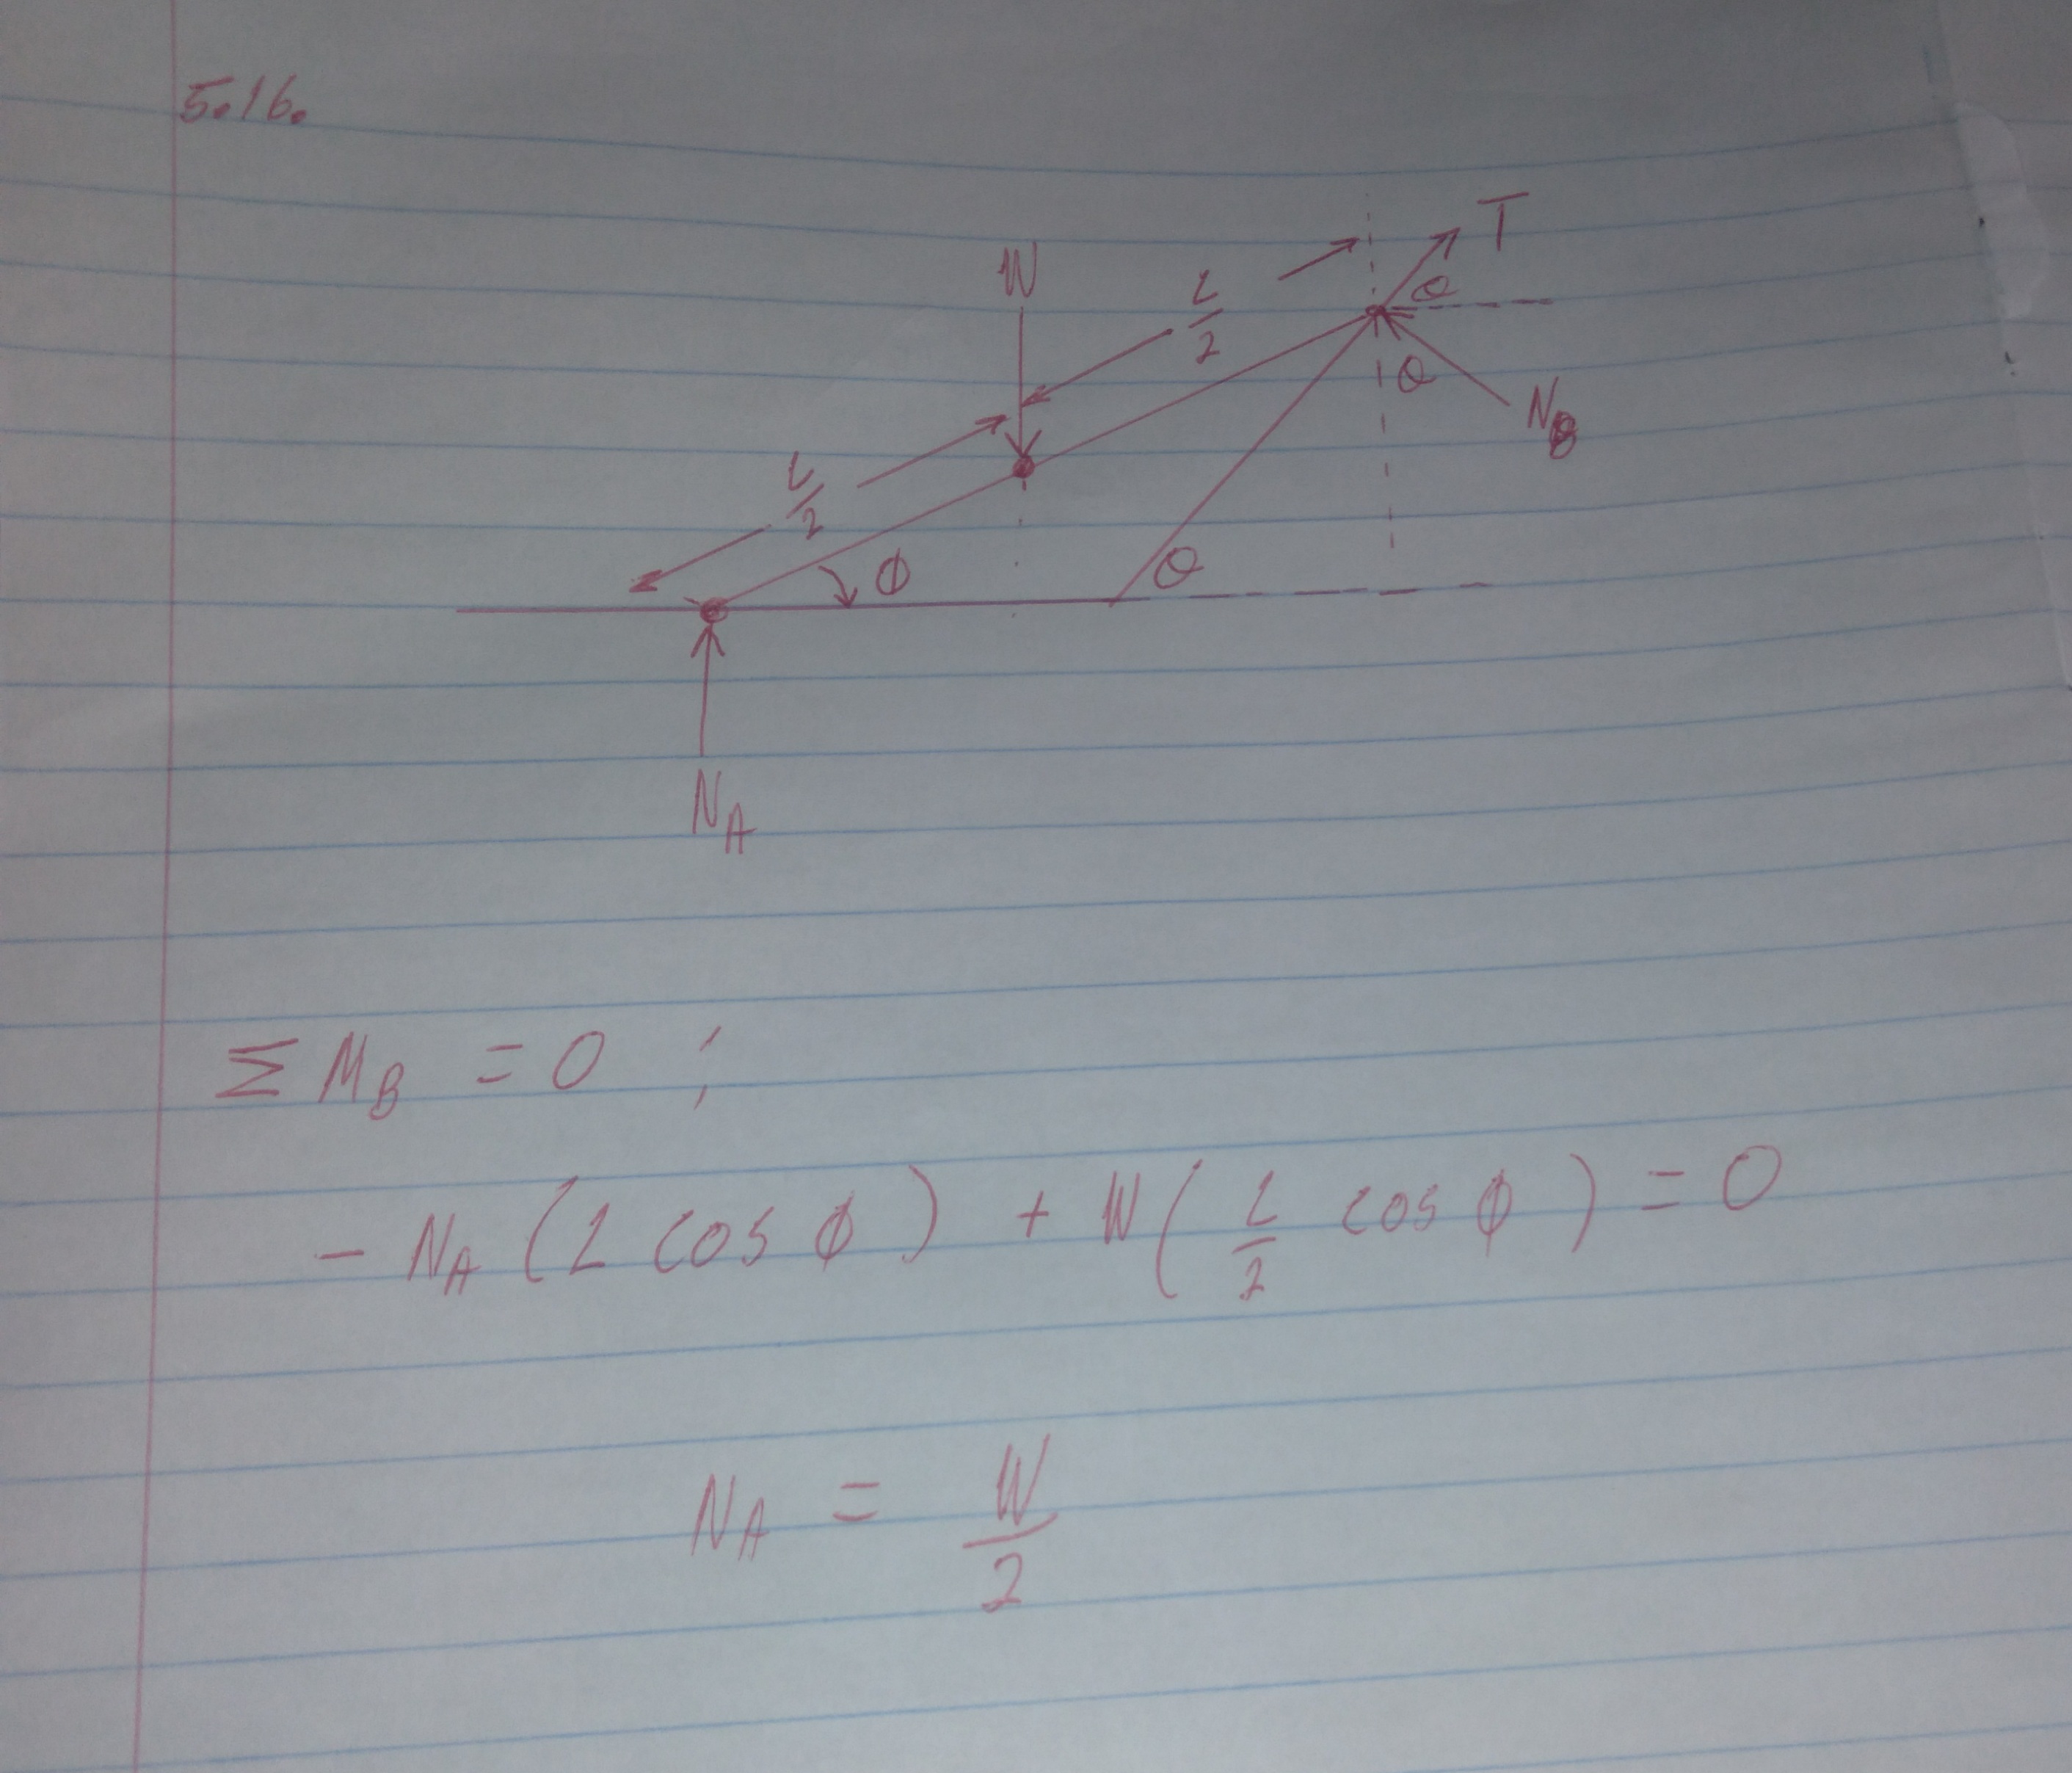 5.16.
T
W
L/2
θ
θ
N_B
L/2
ϕ
θ
N_A
Σ M_B = 0 ;
- N_A (L cos ϕ) + W ( L/2 cos ϕ ) = 0
N_A = W/2